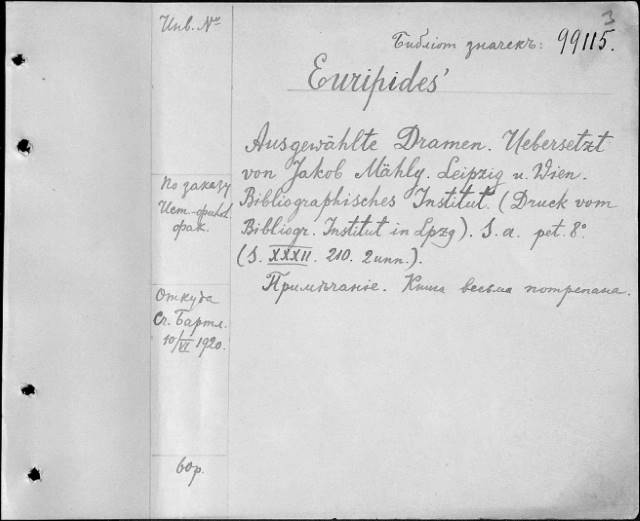 3
Инв. №
Библіот значекъ: 99115.
Euripides'
Ausgewählte Dramen. Uebersetzt
von Jakob Mähly. Leipzig u. Wien.
Bibliographisches Institut. (Druck vom
Bibliogr. Institut in Lpzg). S. a. pet. 8°.
(S. XXXII. 210. 2unn.).
Примѣчаніе. Книга весьма потрепана.
По заказу
Ист.-филол
фак.
Откуда
Сч. Бартл.
10/VI 1920.
60р.